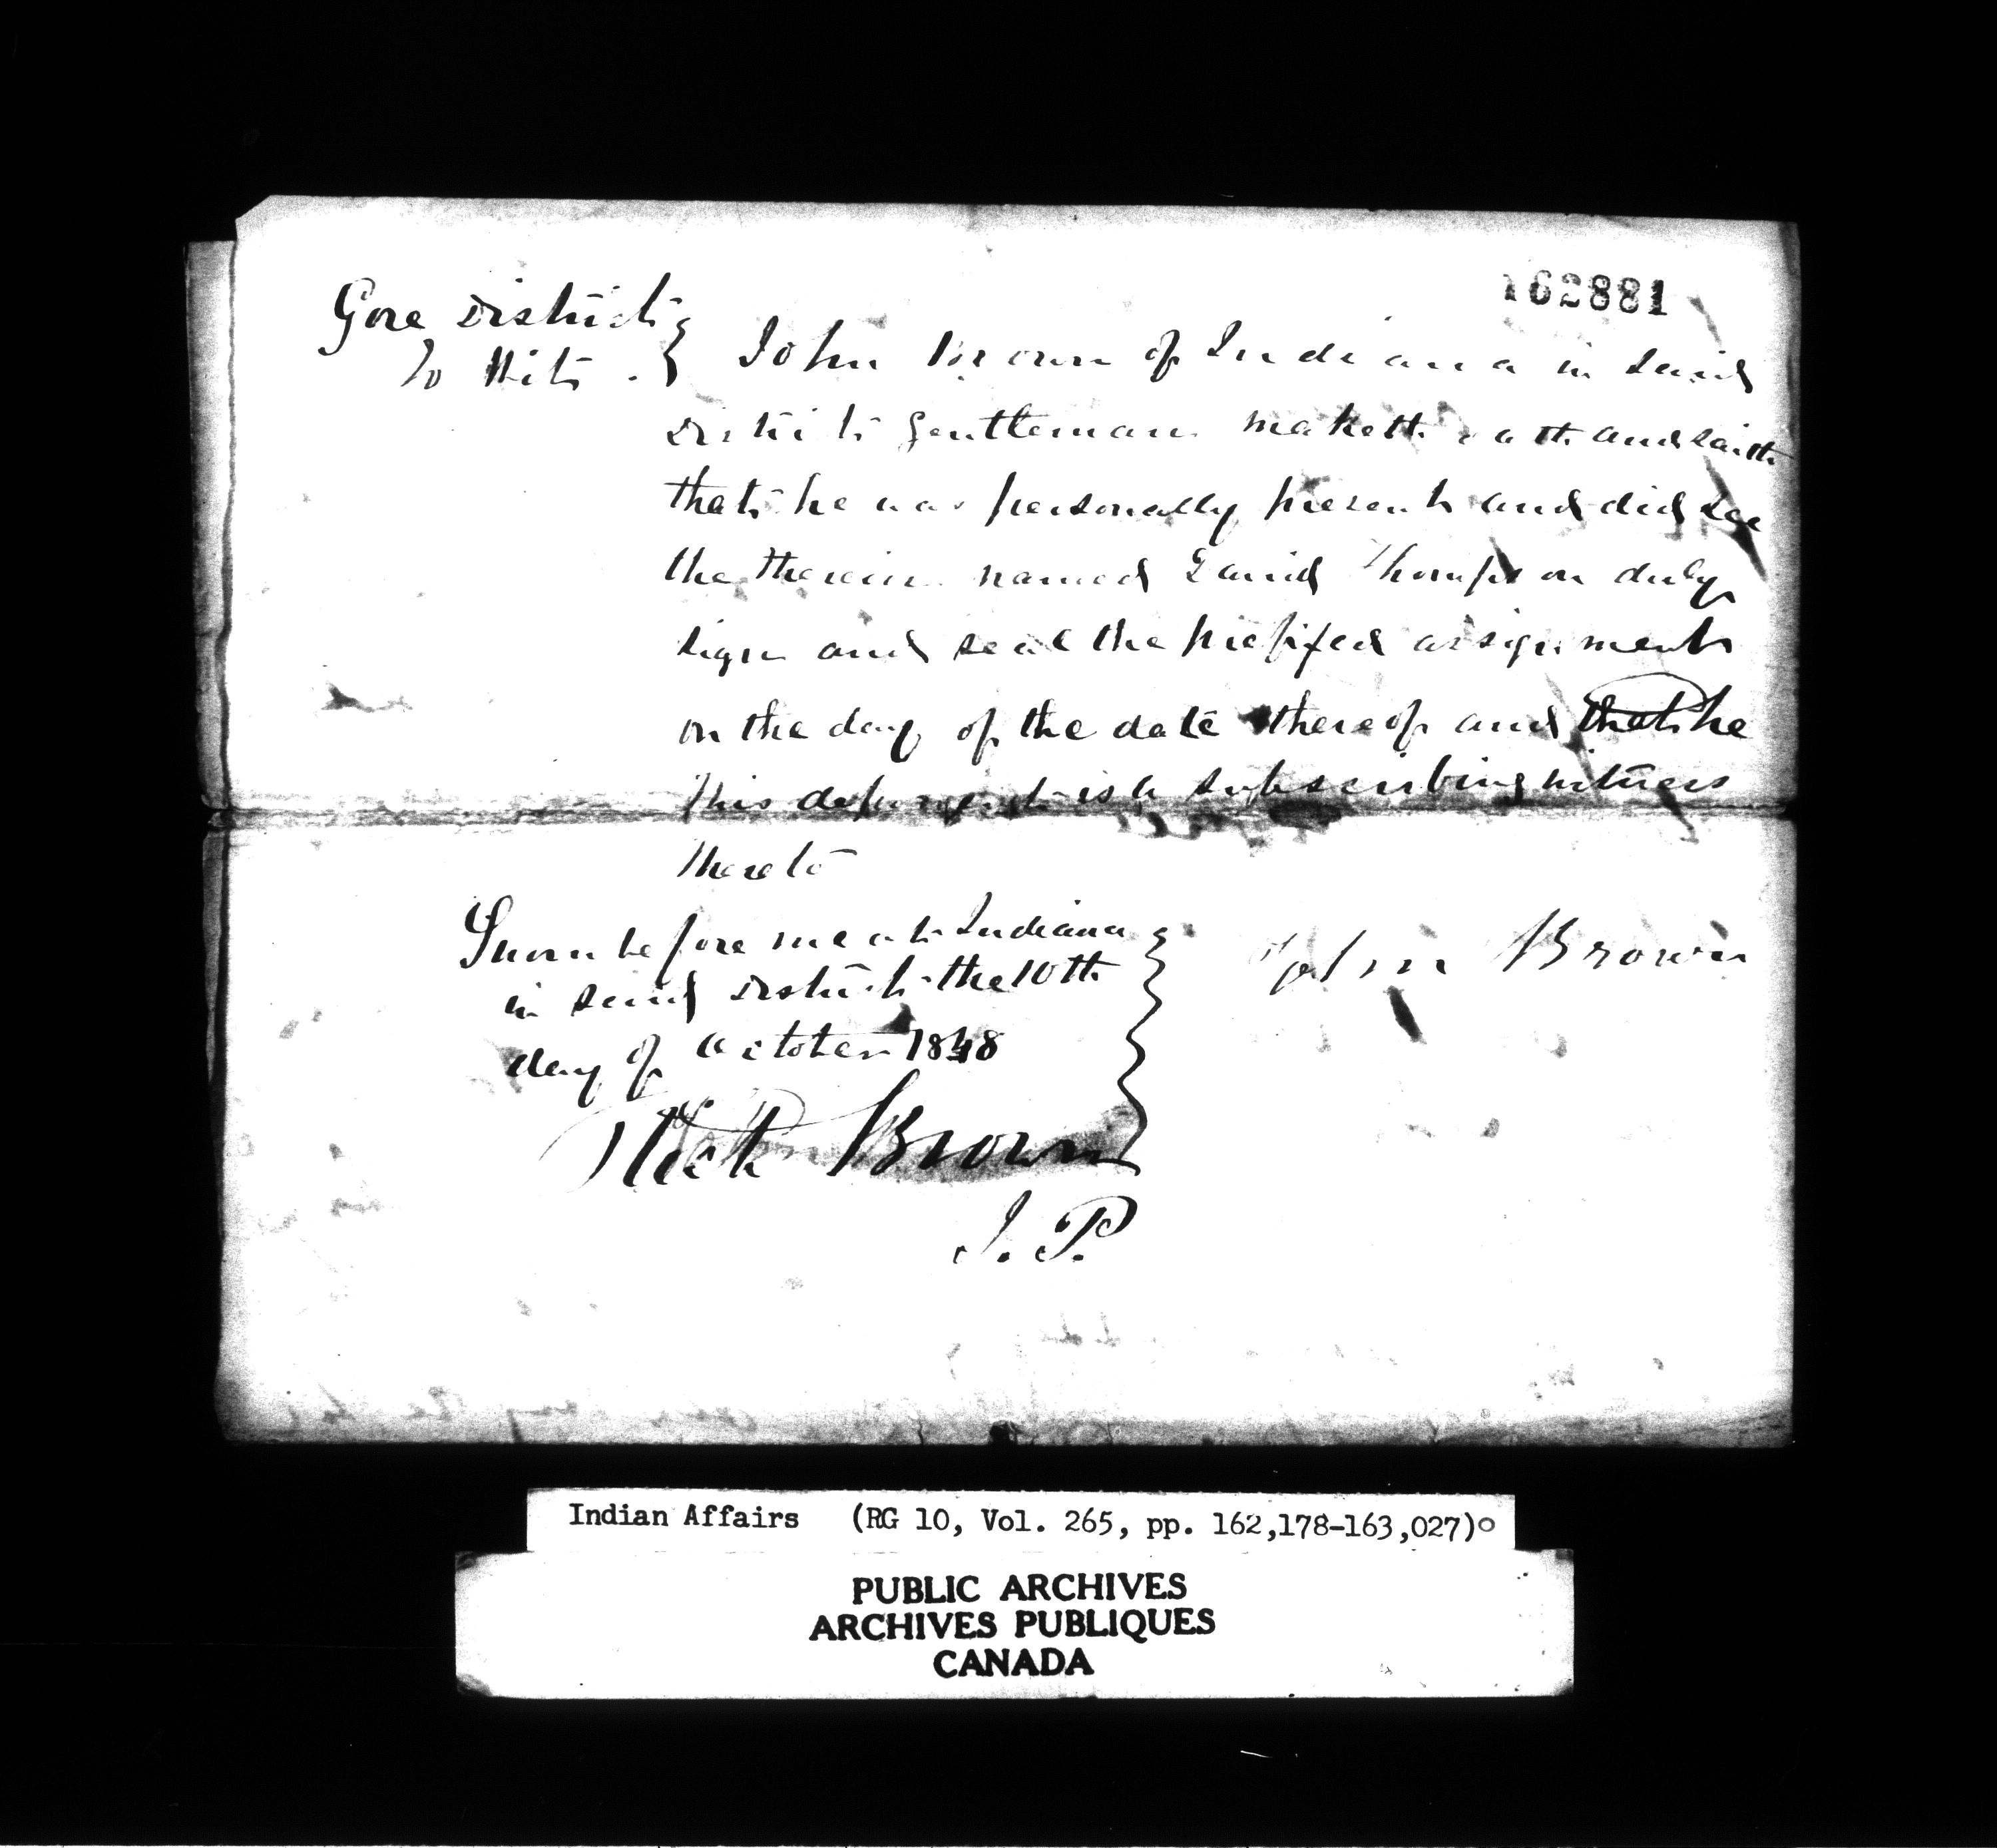 162881
Gore District
To Wit . } John Brown of Indiana in said
District Gentleman maketh oath and saith
that he was personally present and did see
the therein named David Thompson duly
sign and seal the prefixed assignment
on the day of the date thereof and that he
this deponent is a subscribing witness
thereto
Sworn before me at Indiana
in said District the 10th
day of October 1848
John Brown
Brown
J. P.
Indian Affairs (RG 10, Vol. 265, pp. 162,178-163,027)
PUBLIC ARCHIVES
ARCHIVES PUBLIQUES
CANADA